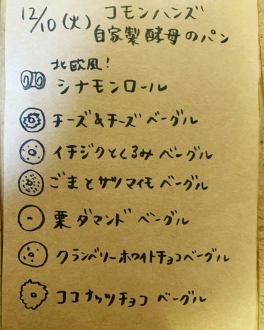 12/10(火) コモンハンズ
自家製酵母のパン
北欧風!
シナモンロール
チーズ&チーズベーグル
イチジクとくるみベーグル
ごまとサツマイモベーグル
栗ダマンドベーグル
クランベリーホワイトチョコベーグル
ココナッツチョコベーグル